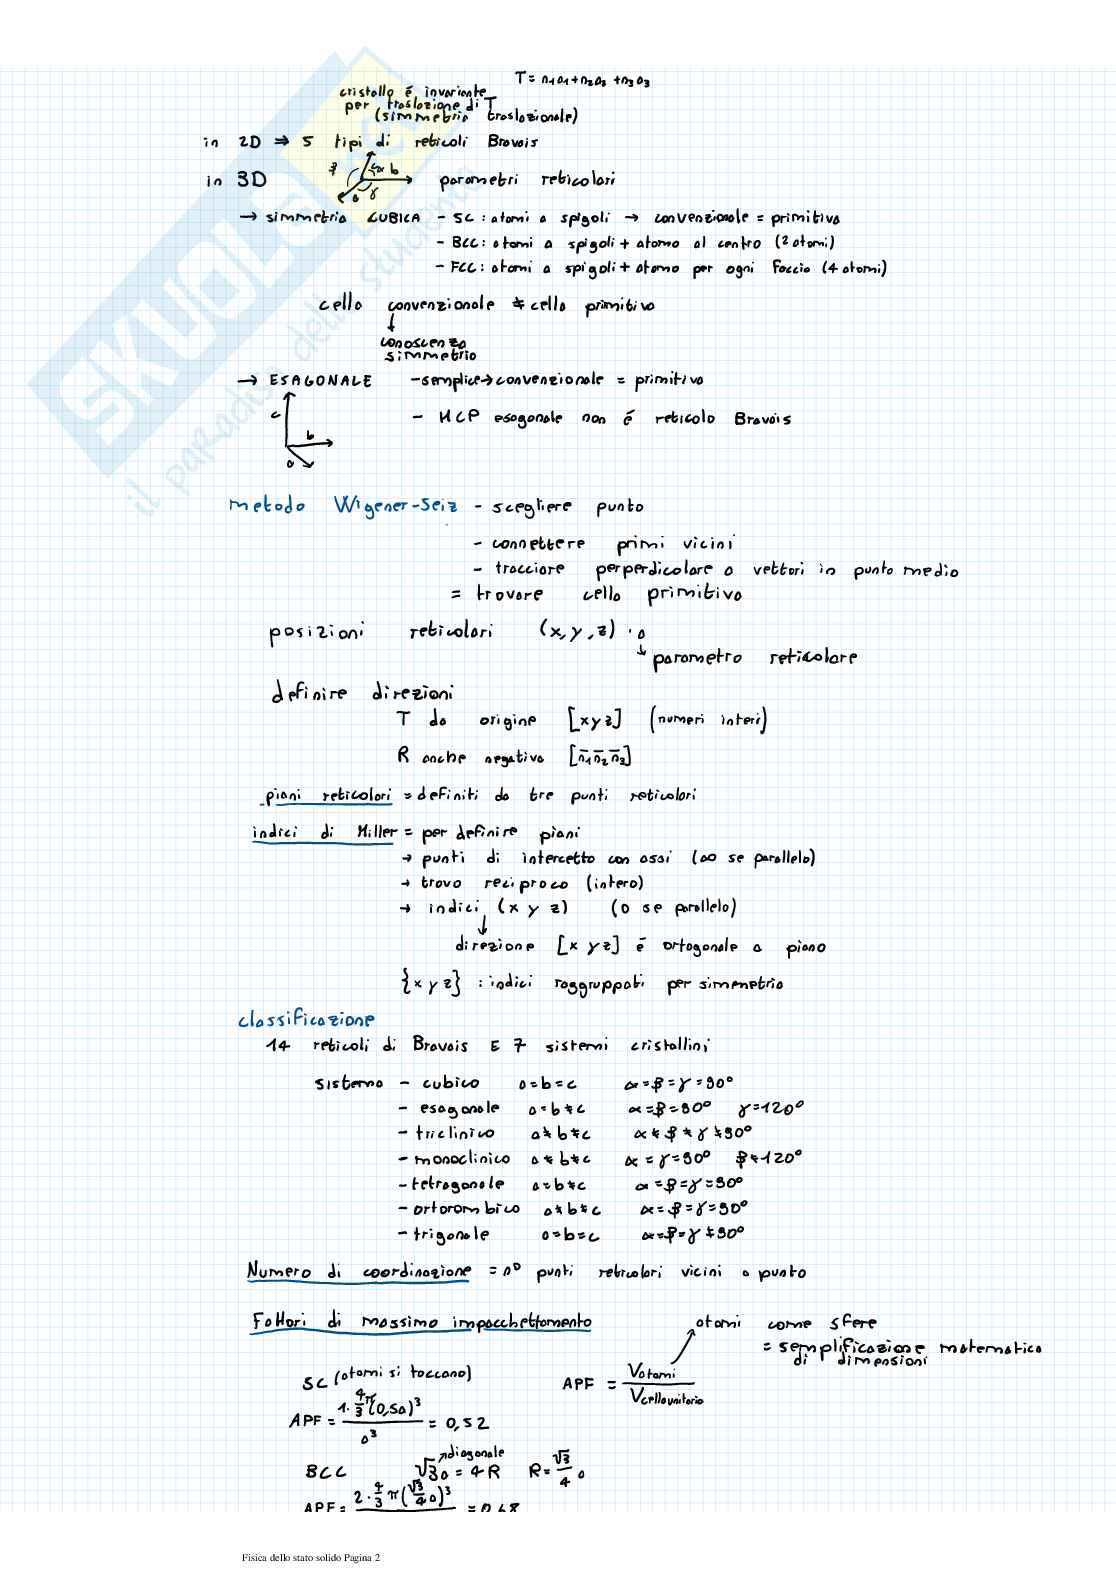 T = n1a1 + n2a2 + n3a3
cristallo é invariante
per traslazione di T
(simmetria traslazionale)
in 2D ⇒ 5 tipi di reticoli Bravais
in 3D α b γ a parametri reticolari
→ simmetria CUBICA - SC: atomi a spigoli → convenzionale = primitiva
- BCC: atomi a spigoli + atomo al centro (2 atomi)
- FCC: atomi a spigoli + atomo per ogni faccia (4 atomi)
cella convenzionale ≠ cella primitiva
↓
conoscenza
simmetria
→ ESAGONALE - semplice → convenzionale = primitiva
c b a
- HCP esagonale non é reticolo Bravais
metodo Wigener-Seiz - scegliere punto
- connettere primi vicini
- tracciare perperdicolare a vettori in punto medio
= trovare cella primitiva
posizioni reticolari (x, y, z) · a
↳ parametro reticolare
definire direzioni
T da origine [x y z] (numeri interi)
R anche negativa [n̄1 n̄2 n̄3]
piani reticolari = definiti da tre punti reticolari
indici di Miller = per definire piani
→ punti di intercetta con assi (∞ se parallelo)
→ trovo reciproco (intero)
→ indici (x y z) (0 se parallelo)
↓
direzione [x y z] é ortogonale a piano
{x y z} : indici raggruppati per simmetria
classificazione
14 reticoli di Bravais E 7 sistemi cristallini
sistema - cubico a=b=c α=β=γ=90°
- esagonale a=b≠c α=β=90° γ=120°
- triclinico a≠b≠c α≠β≠γ≠90°
- monoclinico a≠b≠c α=γ=90° β≠120°
- tetragonale a=b≠c α=β=γ=90°
- ortorombico a≠b≠c α=β=γ=90°
- trigonale a=b=c α=β=γ≠90°
Numero di coordinazione = n° punti reticolari vicini a punto
Fattori di massimo impacchettamento
atomi come sfere
= semplificazione matematica
di dimensioni
SC (atomi si toccano) APF = Vatomi / Vcella unitaria
APF = 1·4/3 π(0,5a)³ / a³ = 0,52
BCC √3a = 4R R = √3/4 a
↗diagonale
APF = 2·4/3 π(√3/4 a)³ = 0,68
Fisica dello stato solido Pagina 2
SKUOLA
il paradiso dello studente